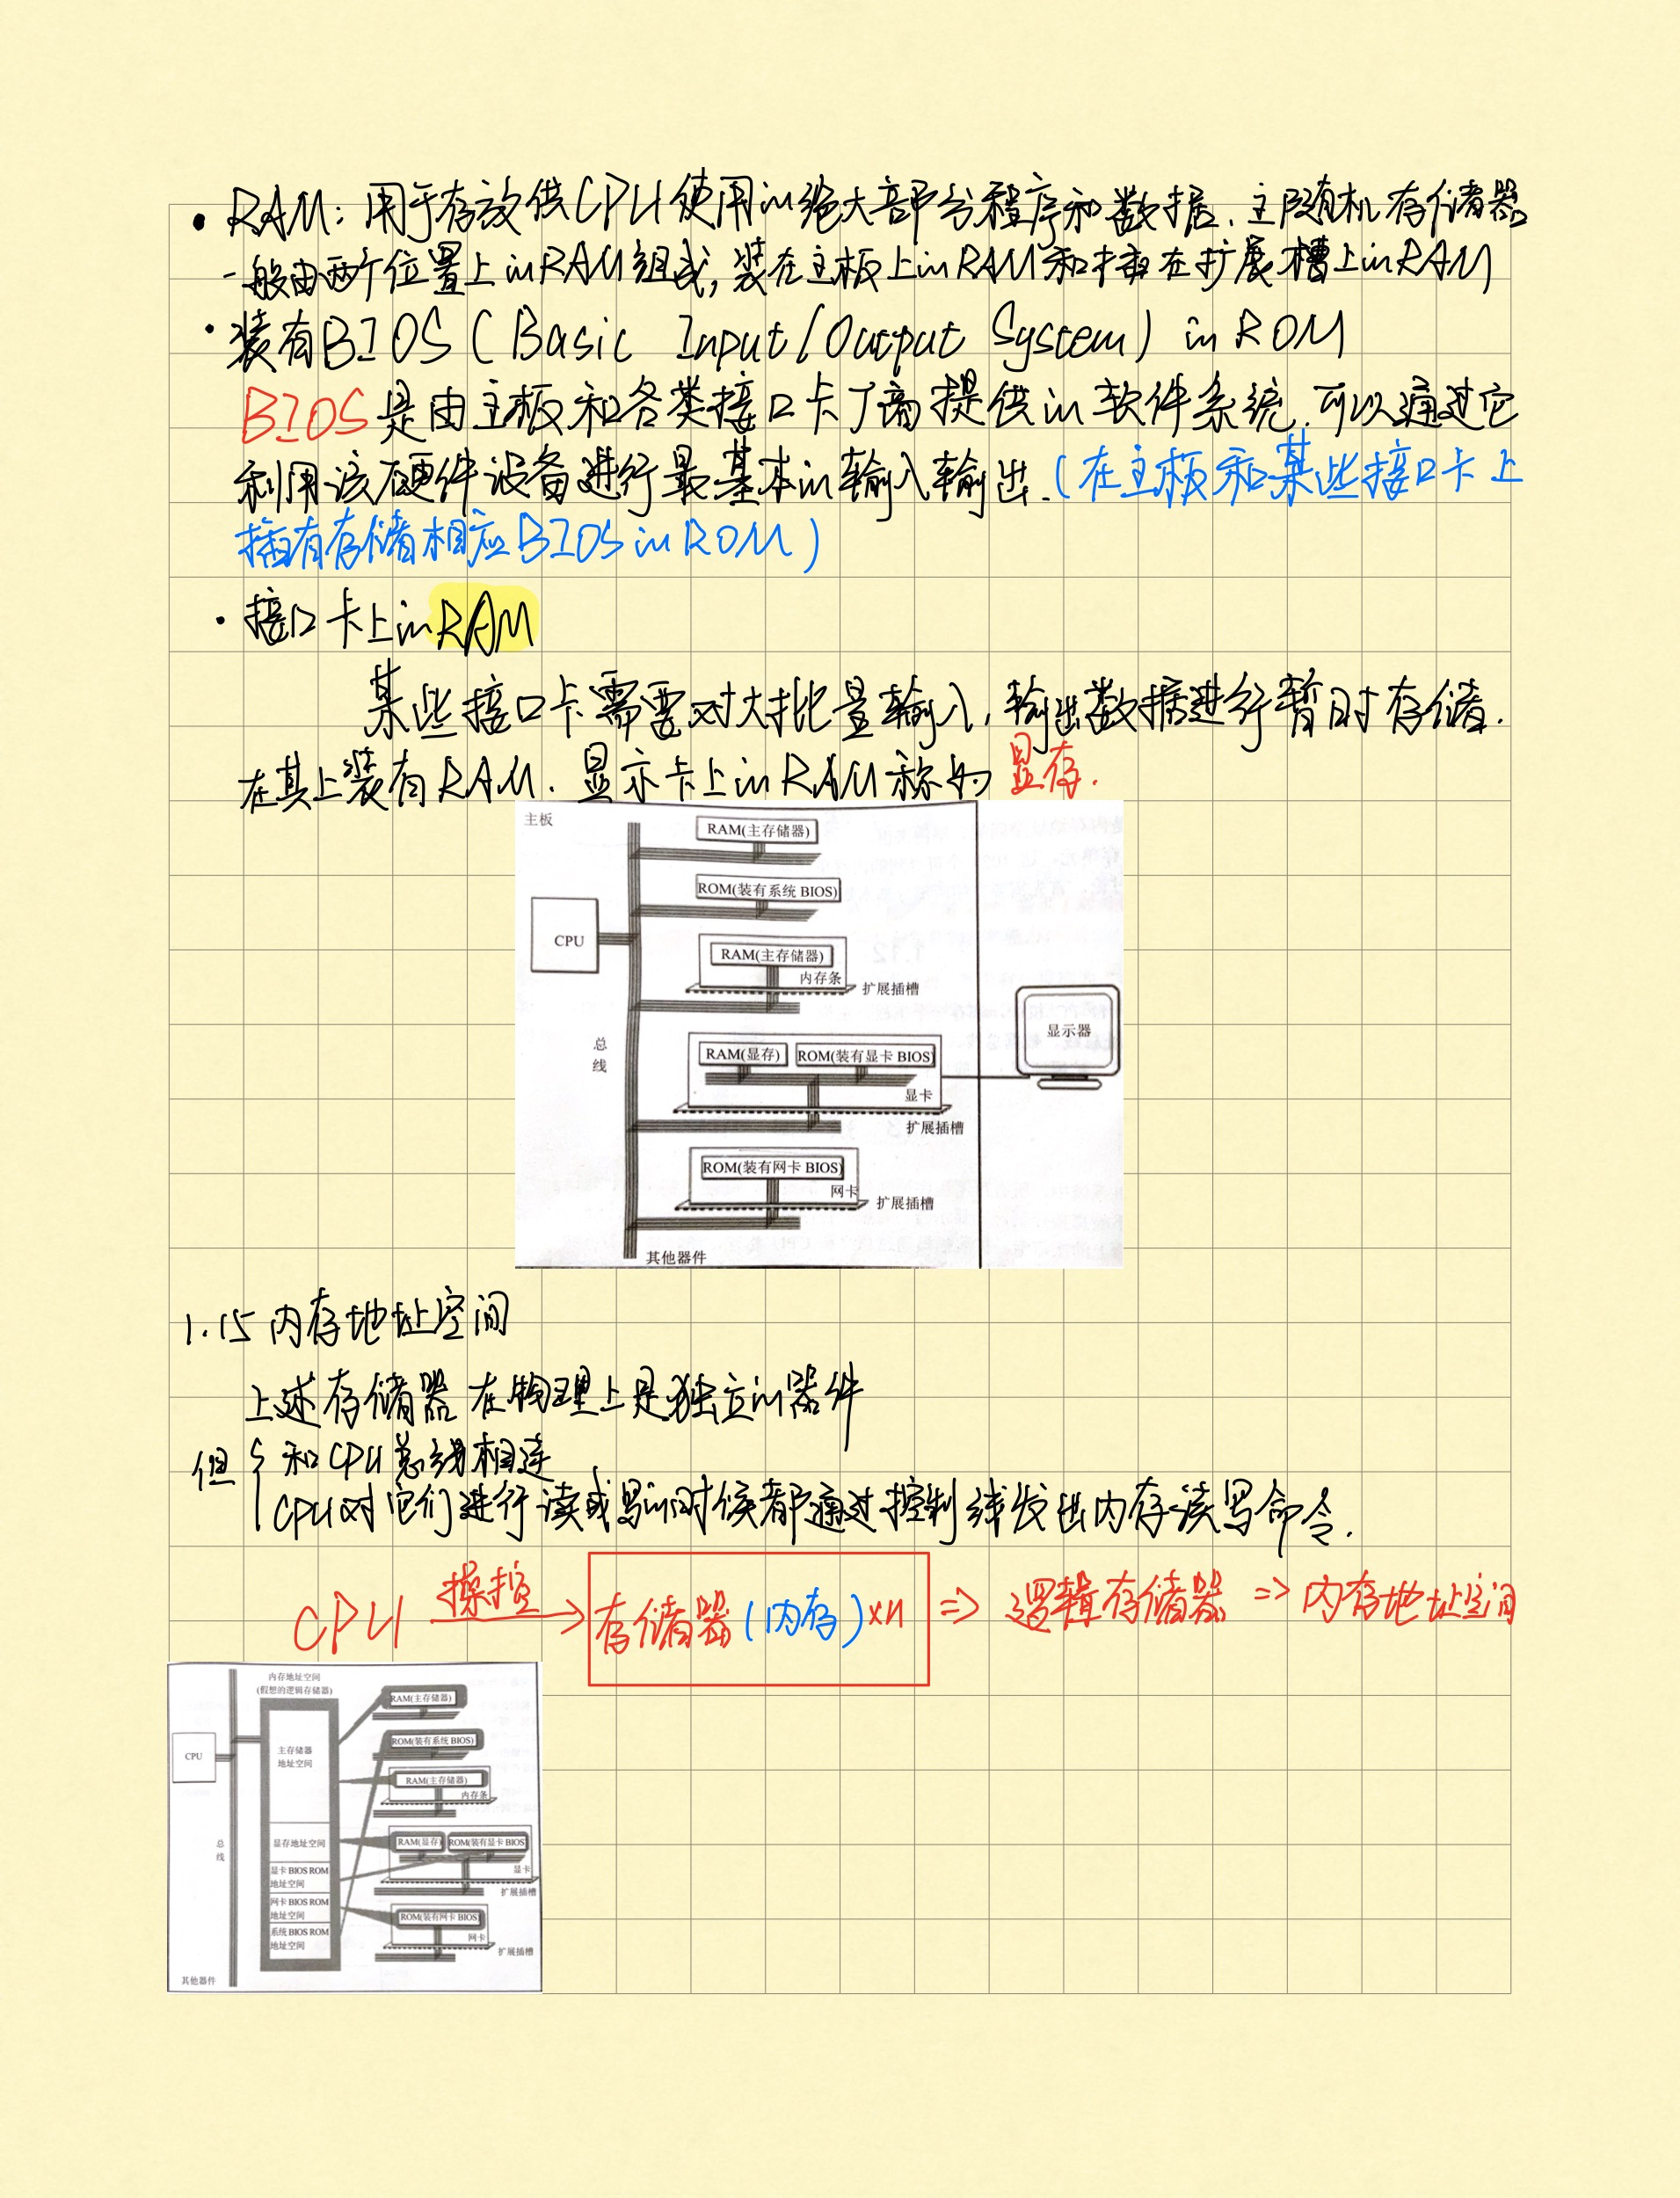 • RAM：用于存放供CPU使用的绝大部分程序和数据．主随机存储器
一般由两个位置上的RAM组成，装在主板上的RAM和插在扩展槽上的RAM
• 装有BIOS（Basic Input/Output System）的ROM
BIOS是由主板和各类接口卡厂商提供的软件系统．可以通过它
利用该硬件设备进行最基本的输入输出．（在主板和某些接口卡上
插有存储相应BIOS的ROM）
• 接口卡上的RAM
某些接口卡需要对大批量输入，输出数据进行暂时存储．
在其上装有RAM．显示卡上的RAM称为 显存．
主板
RAM(主存储器)
ROM(装有系统 BIOS)
CPU
RAM(主存储器)
内存条
扩展插槽
总线
显示器
RAM(显存) ROM(装有显卡 BIOS)
显卡
扩展插槽
ROM(装有网卡 BIOS)
网卡
扩展插槽
其他器件
1.15 内存地址空间
上述存储器在物理上是独立的器件
但 { 和CPU总线相连
CPU对它们进行读或写的时候都通过控制线发出内存读写命令．
CPU 操控→ 存储器（内存）×N => 逻辑存储器 => 内存地址空间
内存地址空间
(假想的逻辑存储器)
RAM(主存储器)
ROM(装有系统 BIOS)
CPU
主存储器
地址空间
RAM(主存储器)
内存条
总线
显存地址空间
RAM(显存) ROM(装有显卡 BIOS)
显卡
显卡 BIOS ROM
地址空间
扩展插槽
网卡 BIOS ROM
地址空间
ROM(装有网卡 BIOS)
系统 BIOS ROM
地址空间
网卡
扩展插槽
其他器件